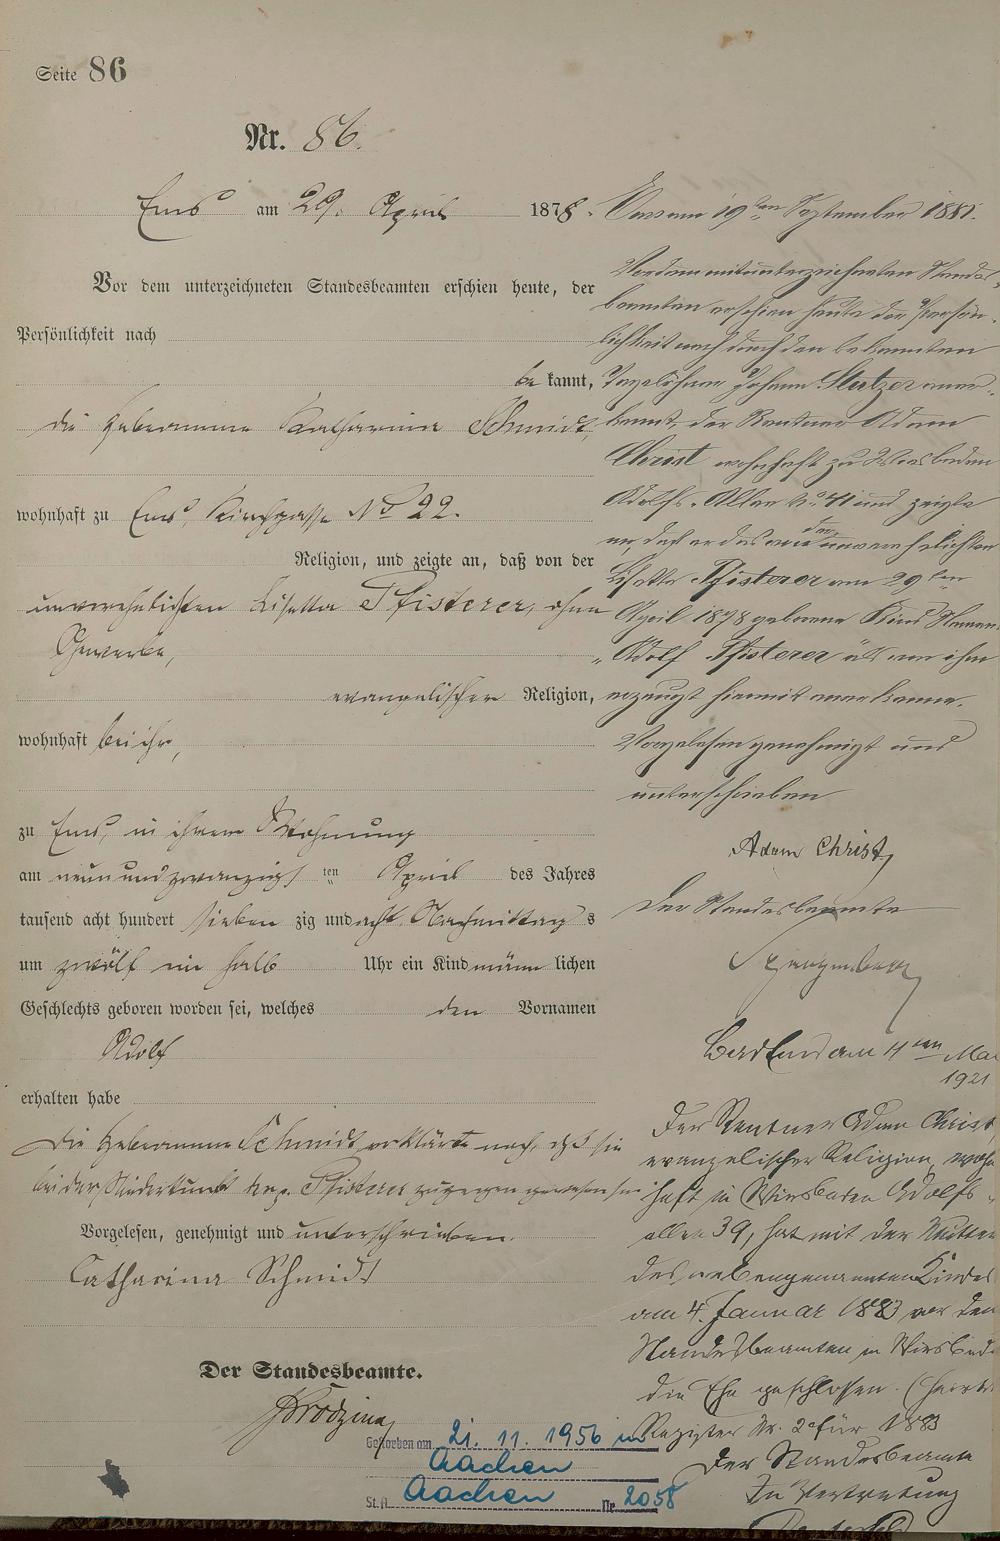 Seite 86
Nr. 86.
Ems am 29. April 1878.
Vor dem unterzeichneten Standesbeamten erschien heute, der
Persönlichkeit nach
be kannt,
die Hebamme Katharina Schmidt,
wohnhaft zu Ems, Kirchgasse No 22.
Religion, und zeigte an, daß von der
unverehelichten Lisetta Pfisterer, ohne
Gewerbe,
evangelischer Religion,
wohnhaft bei ihr,
zu Ems, in ihrer Wohnung
am neun und zwanzigsten April des Jahres
tausend acht hundert sieben zig und acht Nachmittag s
um zwölf ein halb Uhr ein Kind männ lichen
Geschlechts geboren worden sei, welches den Vornamen
Adolf
erhalten habe
Die Hebamme Schmidt erklärte noch, daß sie
bei der Niederkunft der p. Pfisterer zugegen gewesen sei
Vorgelesen, genehmigt und unterschrieben.
Catharina Schmidt
Der Standesbeamte.
Gestorben am 21. 11. 1956 in
Aachen
St.A. Aachen Nr. 2058
am 19ten September 1881.
Vor dem mitunterzeichneten Standes-
beamten erschien heute der Persön-
lichkeit nach durch den bekannten
Tagelöhner Johann Stutzer aner-
kannt, der Rentner Adam
Christ wohnhaft zu Wiesbaden
Adolfs-Allee No. 41 und zeigte
an, daß er das von der unverehelichten
Lisetta Pfisterer am 29ten
April 1878 geborene Kind Namens
"Adolf Pfisterer als von ihm
erzeugt hiermit anerkenne.
Vorgelesen genehmigt und
unterschrieben
Adam Christ
Der Standesbeamte
Bad Ems am 11ten Mai
1921
Der Rentner Adam Christ,
evangelischer Religion, wohn
haft in Wiesbaden Adolfs-
allee 39, hat mit der Mutter
des nebengenannten Kindes
am 4. Januar 1883 vor dem
Standesbeamten in Wiesbaden
die Ehe geschlossen. (Heirats
Register Nr. 2 für 1883
Der Standesbeamte
In Vertretung